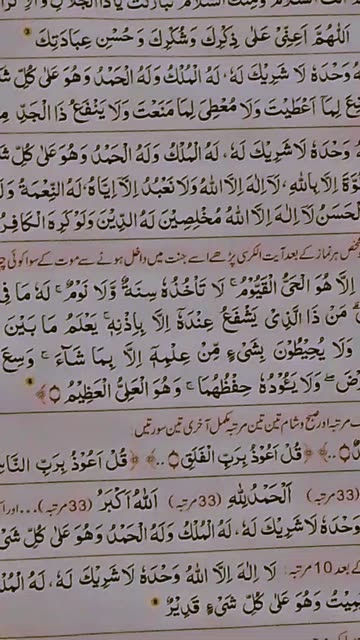 السلام ومنك السلام تباركت يا ذا الجلال
اَللّٰهُمَّ اَعِنِّىْ عَلٰى ذِكْرِكَ وَشُكْرِكَ وَحُسْنِ عِبَادَتِكَ
وَحْدَهٗ لَا شَرِيْكَ لَهٗ، لَهُ الْمُلْكُ وَلَهُ الْحَمْدُ وَهُوَ عَلٰى كُلِّ
لِمَا اَعْطَيْتَ وَلَا مُعْطِىَ لِمَا مَنَعْتَ وَلَا يَنْفَعُ ذَا الْجَدِّ
وَحْدَهٗ لَا شَرِيْكَ لَهٗ، لَهُ الْمُلْكُ وَلَهُ الْحَمْدُ وَهُوَ عَلٰى كُلِّ
اِلَّا بِاللّٰهِ، لَا اِلٰهَ اِلَّا اللّٰهُ وَلَا نَعْبُدُ اِلَّا اِيَّاهُ، لَهُ النِّعْمَةُ
الْحَسَنُ لَا اِلٰهَ اِلَّا اللّٰهُ مُخْلِصِيْنَ لَهُ الدِّيْنَ وَلَوْ كَرِهَ الْكَافِرُ
ہر نماز کے بعد آیت الکرسی پڑھے اسے جنت میں داخل ہونے سے موت کے سوا کوئی
اِلَّا هُوَ الْحَىُّ الْقَيُّوْمُ ۚ لَا تَاْخُذُهٗ سِنَةٌ وَّلَا نَوْمٌ ؕ لَهٗ مَا فِى
مَنْ ذَا الَّذِىْ يَشْفَعُ عِنْدَهٗ اِلَّا بِاِذْنِهٖ ؕ يَعْلَمُ مَا بَيْنَ
وَلَا يُحِيْطُوْنَ بِشَىْءٍ مِّنْ عِلْمِهٖ اِلَّا بِمَا شَآءَ ۚ وَسِعَ
وَلَا يَئُوْدُهٗ حِفْظُهُمَا ۚ وَهُوَ الْعَلِىُّ الْعَظِيْمُ
مرتبہ اور صبح و شام تین تین مرتبہ مکمل آخری تین سورتیں:
قُلْ اَعُوْذُ بِرَبِّ الْفَلَقِ ... قُلْ اَعُوْذُ بِرَبِّ النَّاسِ
(33 مرتبہ) اَلْحَمْدُلِلّٰهِ (33 مرتبہ) اَللّٰهُ اَكْبَرُ (33 مرتبہ)...
وَحْدَهٗ لَا شَرِيْكَ لَهٗ، لَهُ الْمُلْكُ وَلَهُ الْحَمْدُ وَهُوَ عَلٰى كُلِّ
کے بعد 10 مرتبہ: لَا اِلٰهَ اِلَّا اللّٰهُ وَحْدَهٗ لَا شَرِيْكَ لَهٗ، لَهُ
وَهُوَ عَلٰى كُلِّ شَىْءٍ قَدِيْرٌ